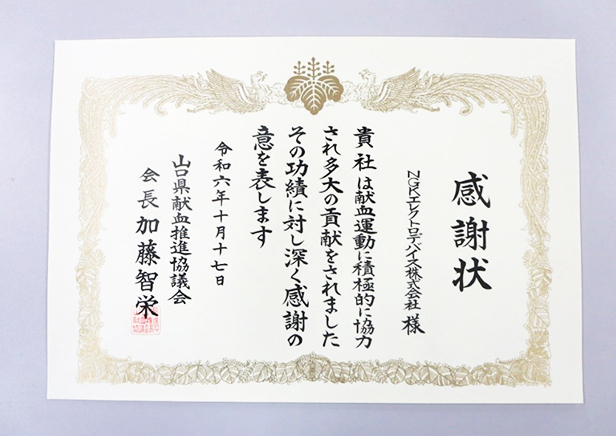 感謝状
NGKエレクトロデバイス株式会社 様
貴社は献血運動に積極的に協力
され多大の貢献をされました
その功績に対し深く感謝の
意を表します
令和六年十月十七日
山口県献血推進協議会
会長 加藤智栄